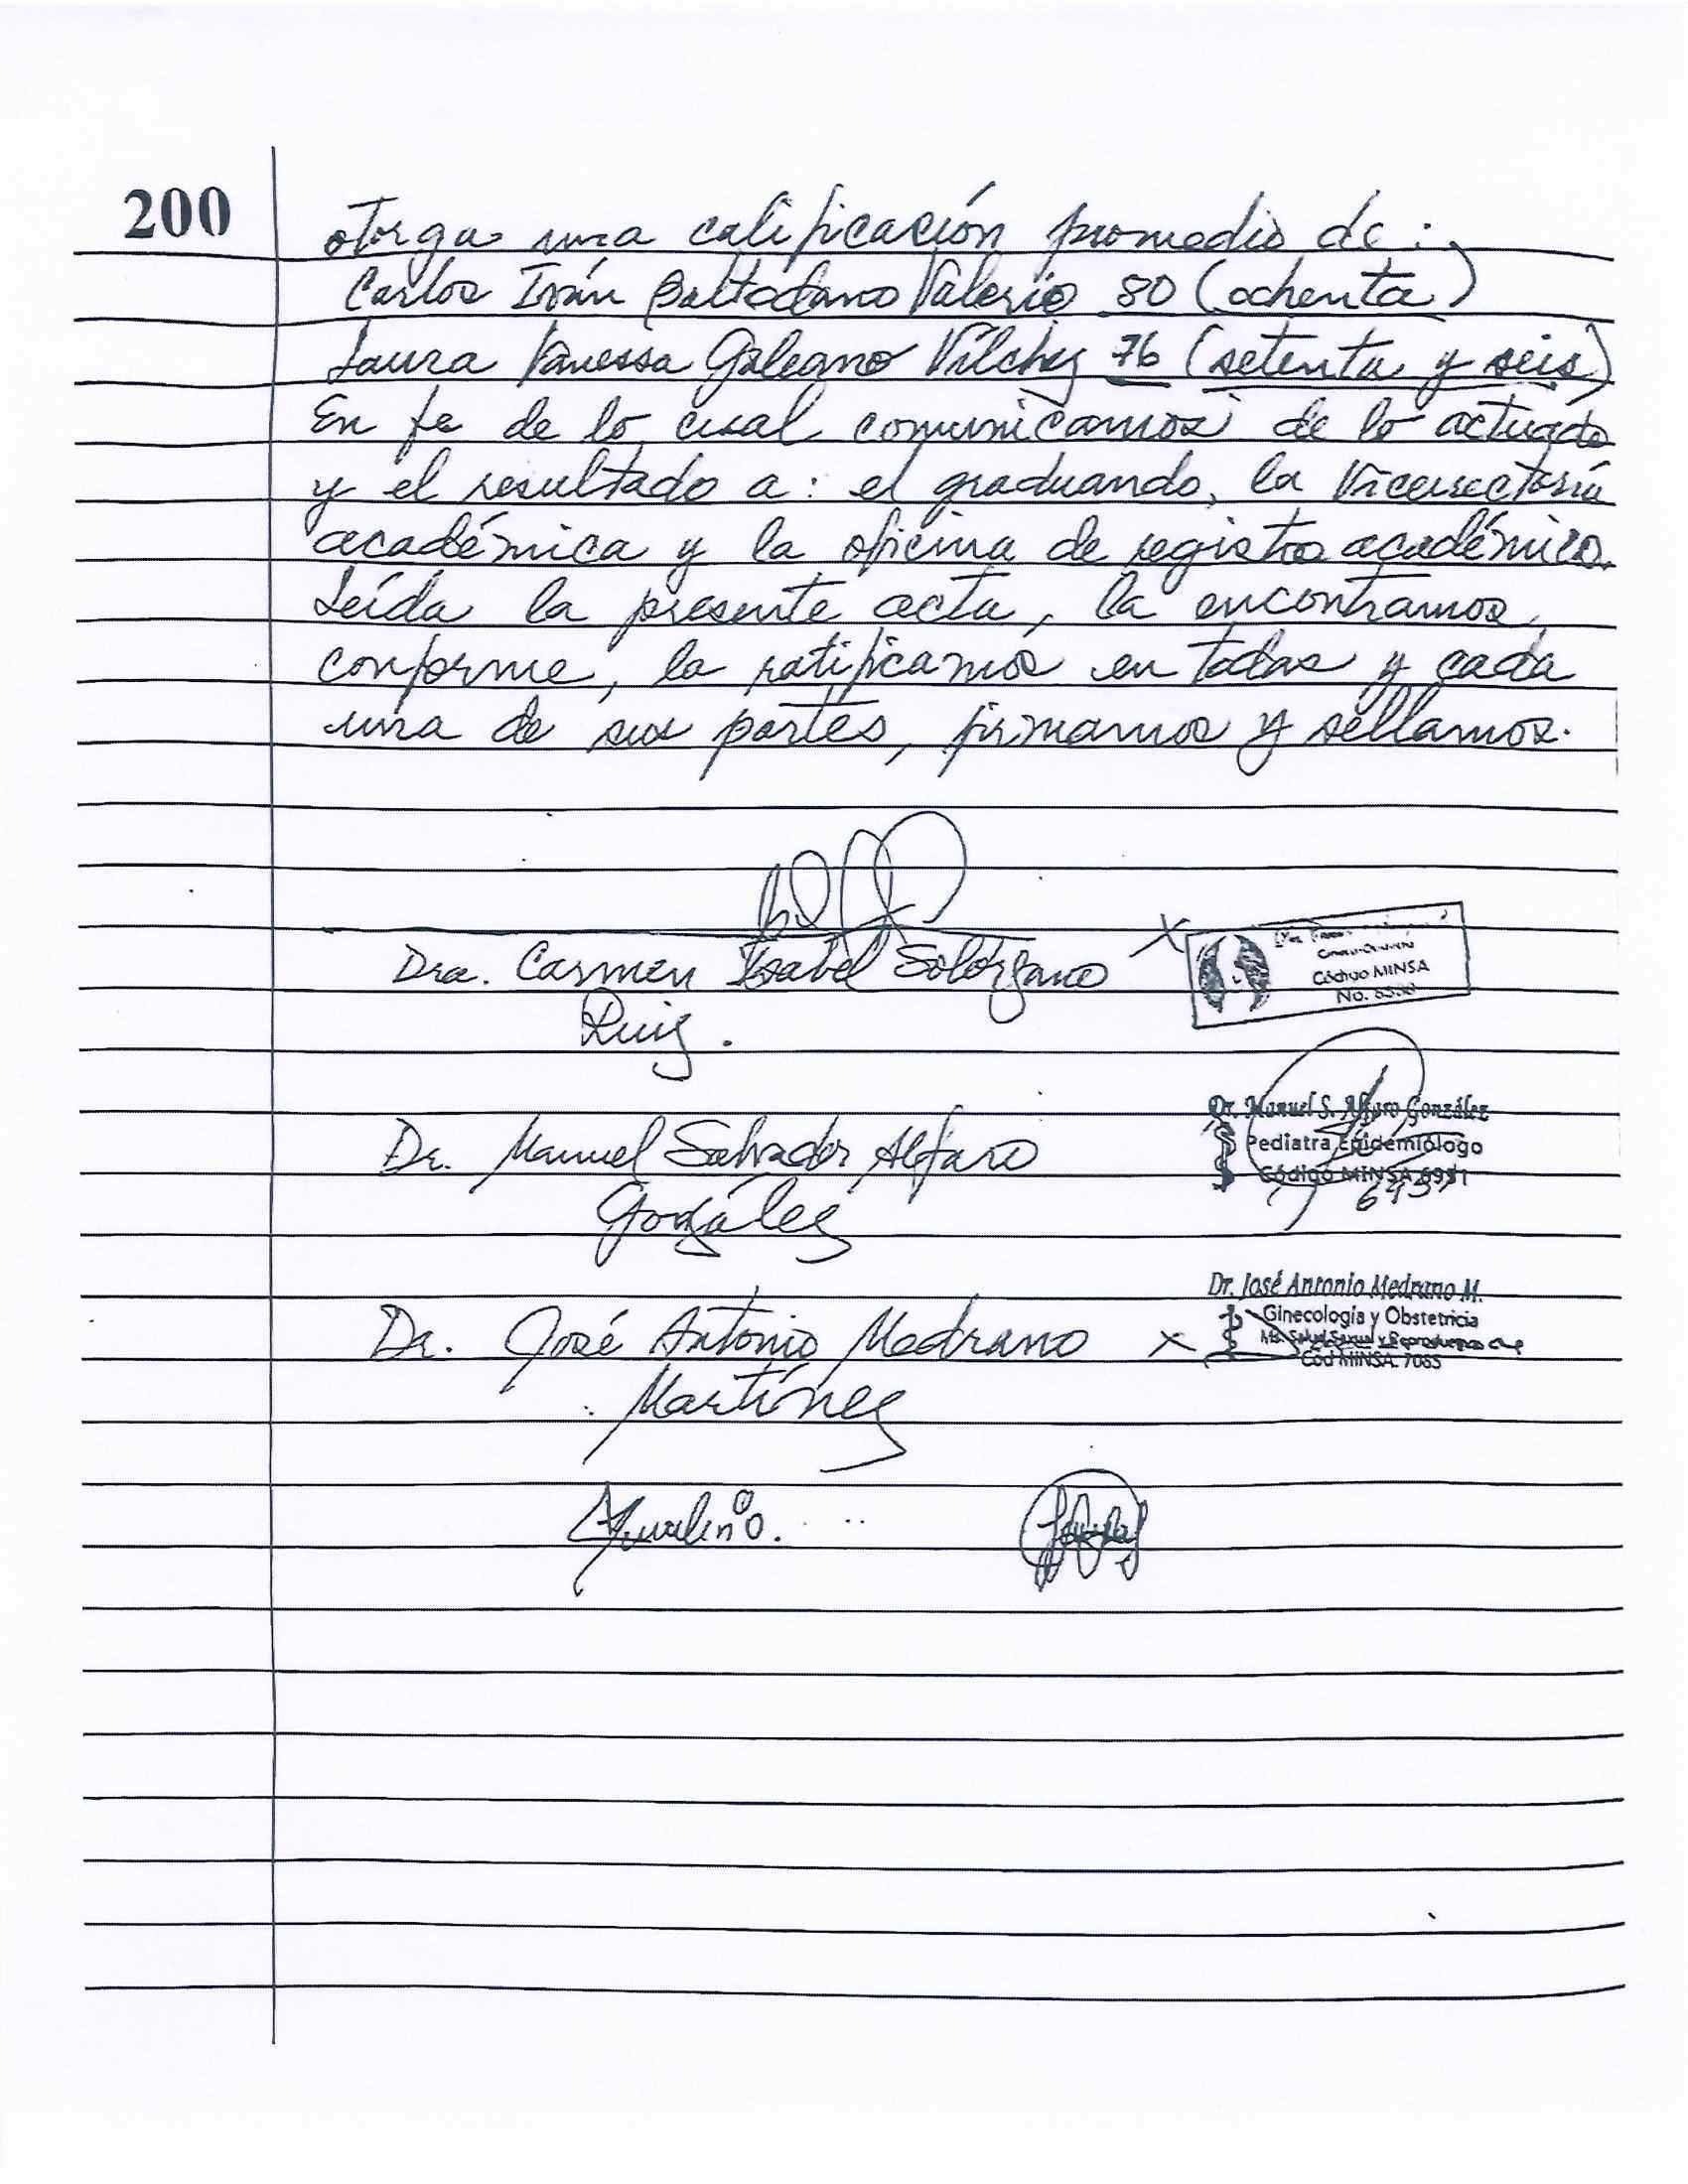 200
otorga una calificación promedio de:
Carlos Iván Baltodano Valerio 80 (ochenta)
Laura Vanessa Galeano Vílchez 76 (setenta y seis)
En fe de lo cual comunicamos de lo actuado
y el resultado a: el graduando, la Vicerrectoría
académica y la oficina de registro académico.
Leída la presente acta, la encontramos
conforme, la ratificamos en todas y cada
una de sus partes, firmamos y sellamos.
Dra. Carmen Ysabel Solórzano
Ruiz.
Código MINSA
No.
Dr. Manuel S. Alfaro González
Pediatra Epidemiólogo
Código MINSA 6951
Dr. Manuel Salvador Alfaro
González
Dr. José Antonio Medrano M.
Ginecología y Obstetricia
Ms. Salud Sexual y Reproductiva
Cod MINSA. 7085
Dr. José Antonio Medrano
Martínez